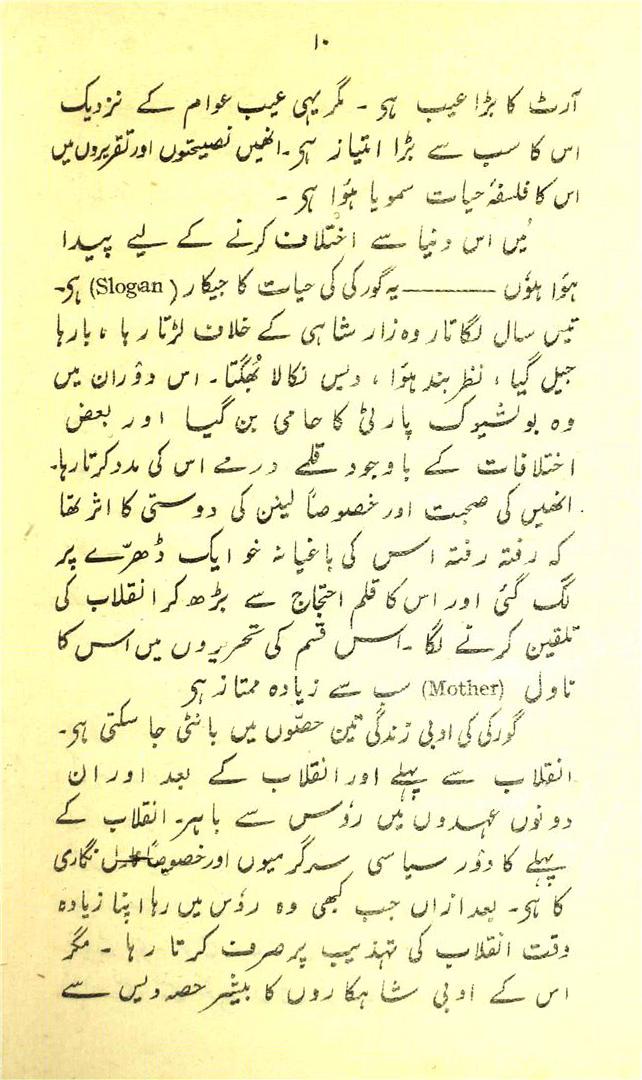 ۱۰
آرٹ کا بڑا عیب ہی ۔ مگر یہی عیب عوام کے نزدیک
اس کا سب سے بڑا امتیاز ہی۔ انھیں نصیحتوں اور تقریروں میں
اس کا فلسفۂ حیات سمویا ہؤا ہی ۔
میں اس دنیا سے اختلاف کرنے کے لیے پیدا
ہؤا ہوٗں ———— یہ گورکی کی حیات کا جیکار (Slogan) ہی۔
تیس سال لگاتار وہ زار شاہی کے خلاف لڑتا رہا ، بارہا
جیل گیا ، نظر بند ہؤا ، دیس نکالا بھُگتا۔ اس دوٗران میں
وہ بولشیوک پارٹی کا حامی بن گیا اور بعض
اختلافات کے باوجود قلمے درمے اس کی مدد کرتا رہا۔
انھیں کی صحبت اور خصوصاً لینن کی دوستی کا اثر تھا
کہ رفتہ رفتہ اس کی باغیانہ خو ایک ڈھرّے پر
لگ گئی اور اس کا قلم احتجاج سے بڑھ کر انقلاب کی
تلقین کرنے لگا ۔ اس قسم کی تحریروں میں اس کا
ناول (Mother) سب سے زیادہ ممتاز ہی
گورکی کی ادبی زندگی تین حصّوں میں بانٹی جا سکتی ہی۔
انقلاب سے پہلے اور انقلاب کے بعد اور ان
دونوں عہدوں میں روٗس سے باہر۔ انقلاب کے
پہلے کا دوٗر سیاسی سرگرمیوں اور خصوصاً نگاری
کا ہی۔ بعد ازاں جب کبھی وہ روٗس میں رہا اپنا زیادہ
وقت انقلاب کی تہذیب پر صرف کرتا رہا ۔ مگر
اس کے ادبی شاہکاروں کا بیشتر حصہ دیس سے